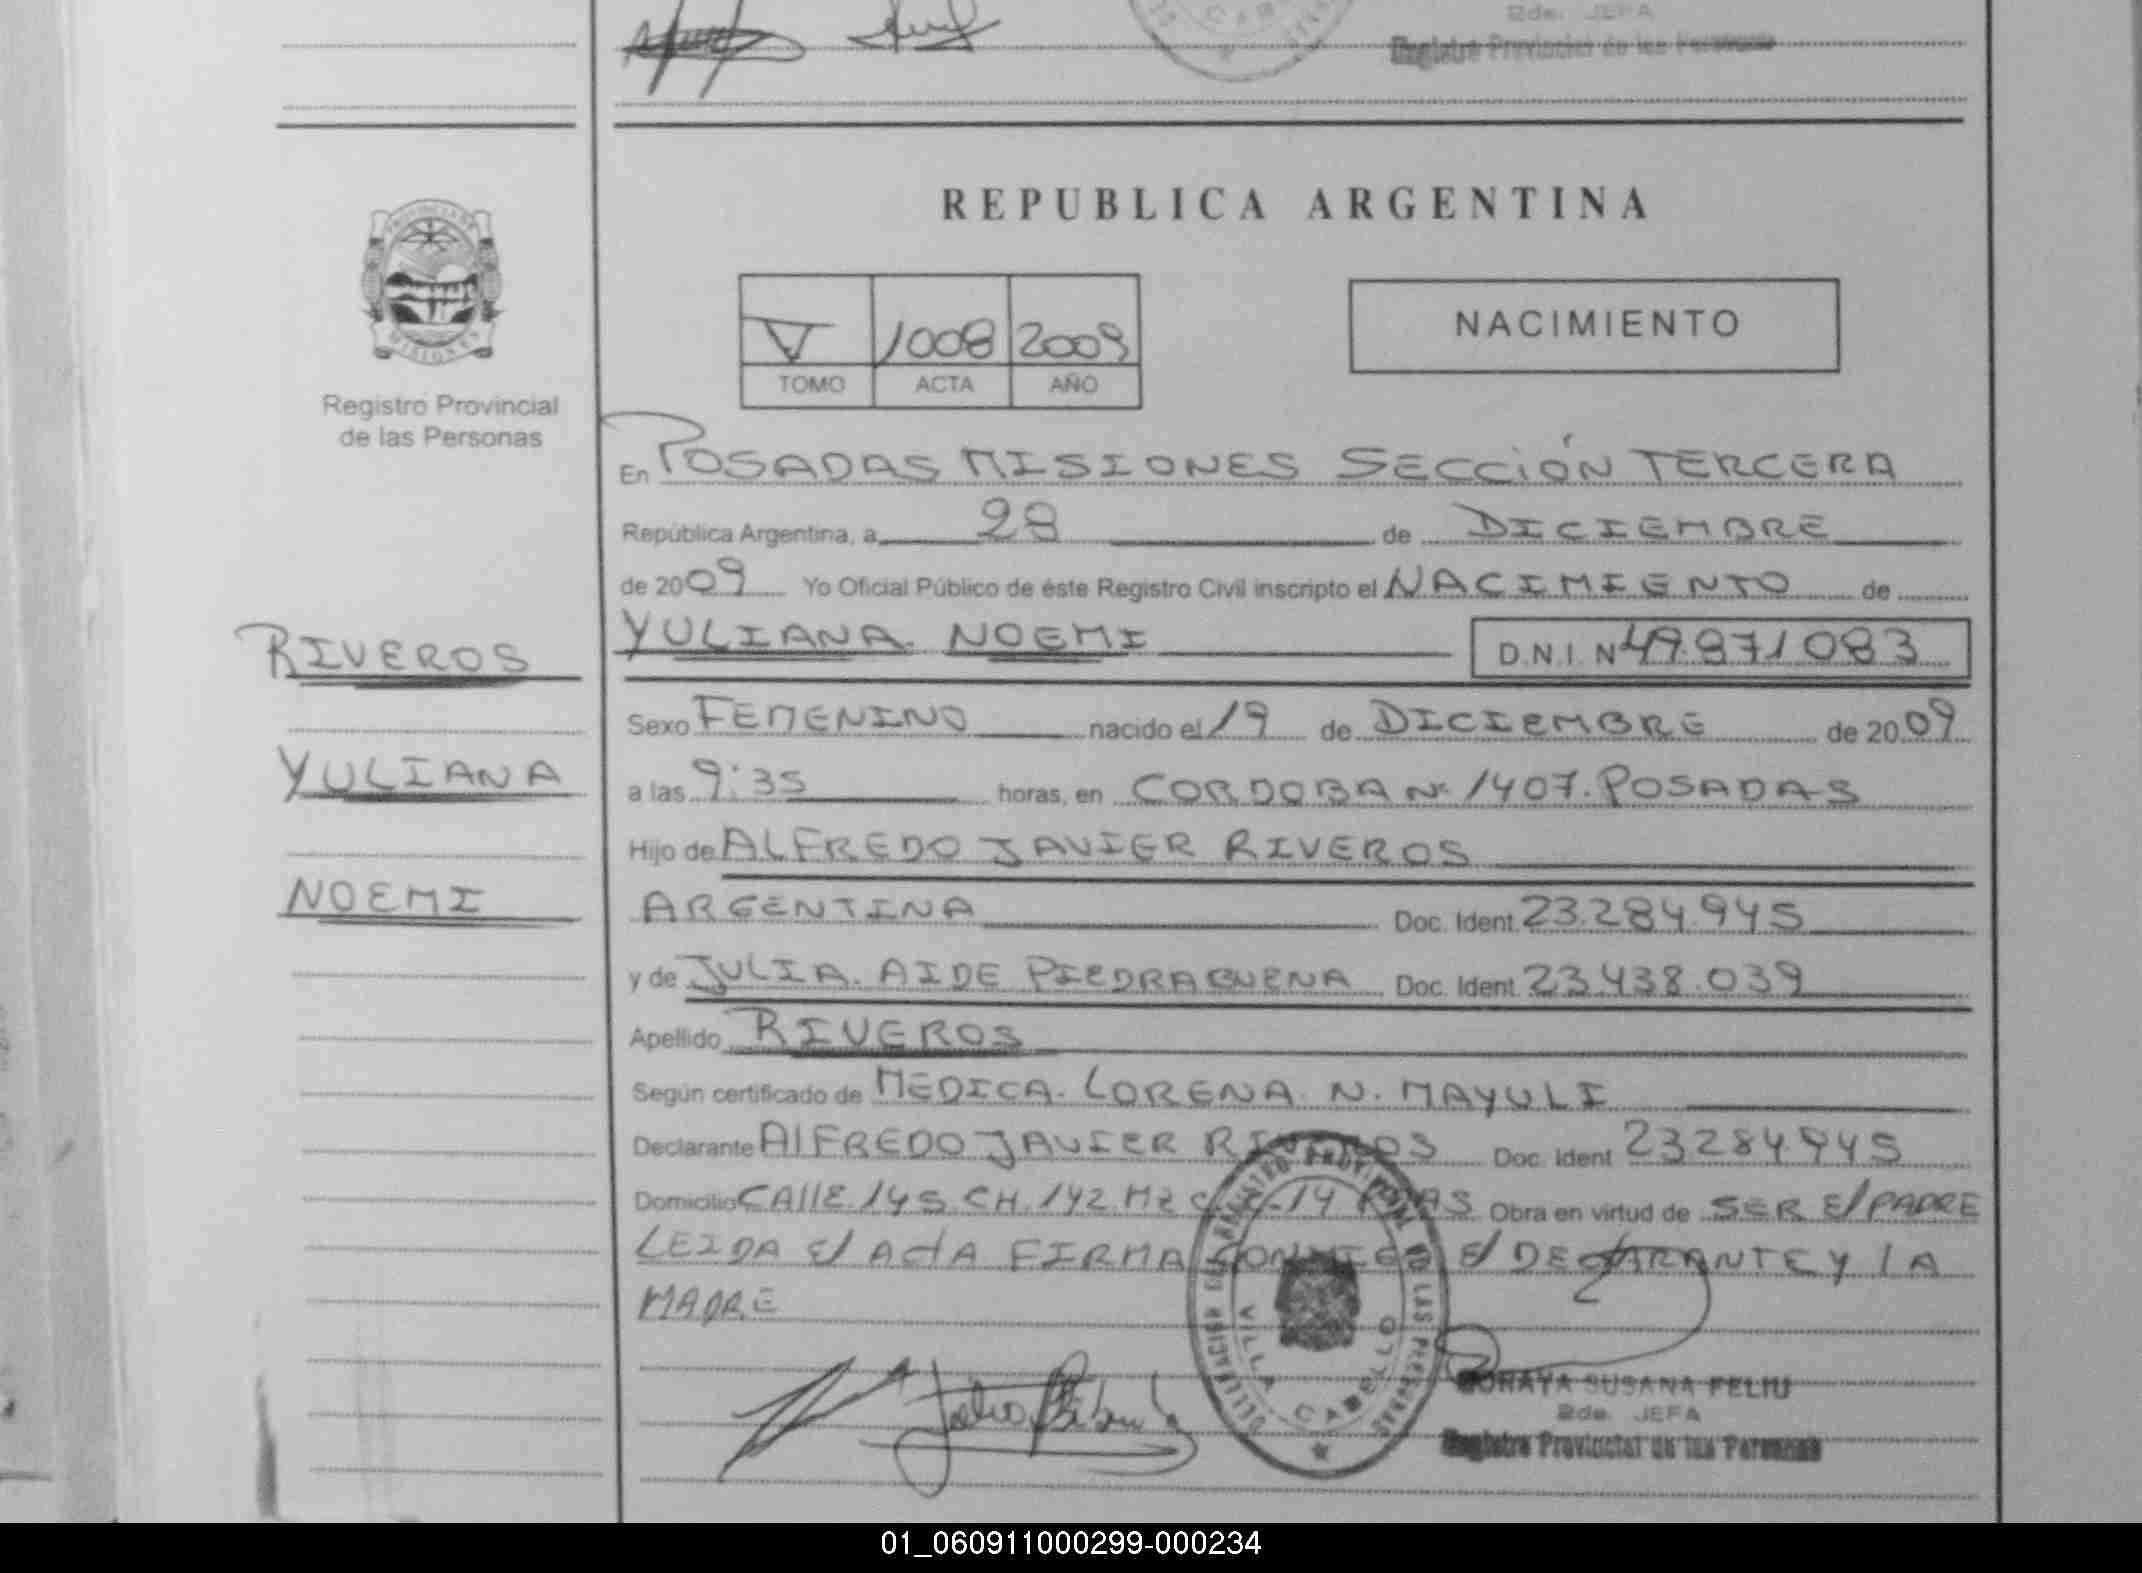 2da. JEFA
Registro Provincial de las Personas
PROVINCIA DE
MISIONES
Registro Provincial
de las Personas
REPUBLICA ARGENTINA
V 1008 2009
TOMO ACTA AÑO
NACIMIENTO
En POSADAS MISIONES SECCIÓN TERCERA
República Argentina, a 28 de DICIEMBRE
de 2009 Yo Oficial Público de éste Registro Civil inscripto el NACIMIENTO de
RIVEROS
YULIANA. NOEMI D.N.I. Nº 49.871083
Sexo FEMENINO nacido el 19 de DICIEMBRE de 2009
YULIANA
a las 9:35 horas, en CORDOBA Nº 1407. POSADAS
Hijo de ALFREDO JAVIER RIVEROS
NOEMI
ARGENTINA Doc. Ident. 23.284.945
y de JULIA. AIDE PIEDRABUENA Doc. Ident. 23.438.039
Apellido RIVEROS
Según certificado de MEDICA. LORENA. N. MAYULI
Declarante AlFREDO JAVIER RIVEROS Doc. Ident 23284.945
Domicilio CAllE 145 CH. 142. MZ C 14 PDAS Obra en virtud de SER El PADRE
LEIDA El ActA FIRMA CONMIGO El DECLARANTE Y lA
MADRE
DELEGACION DEL REGISTRO PROVINCIAL DE LAS PERSONAS
VILLA CABELLO
SORAYA SUSANA FELIU
2da. JEFA
Registro Provincial de las Personas
01_060911000299-000234